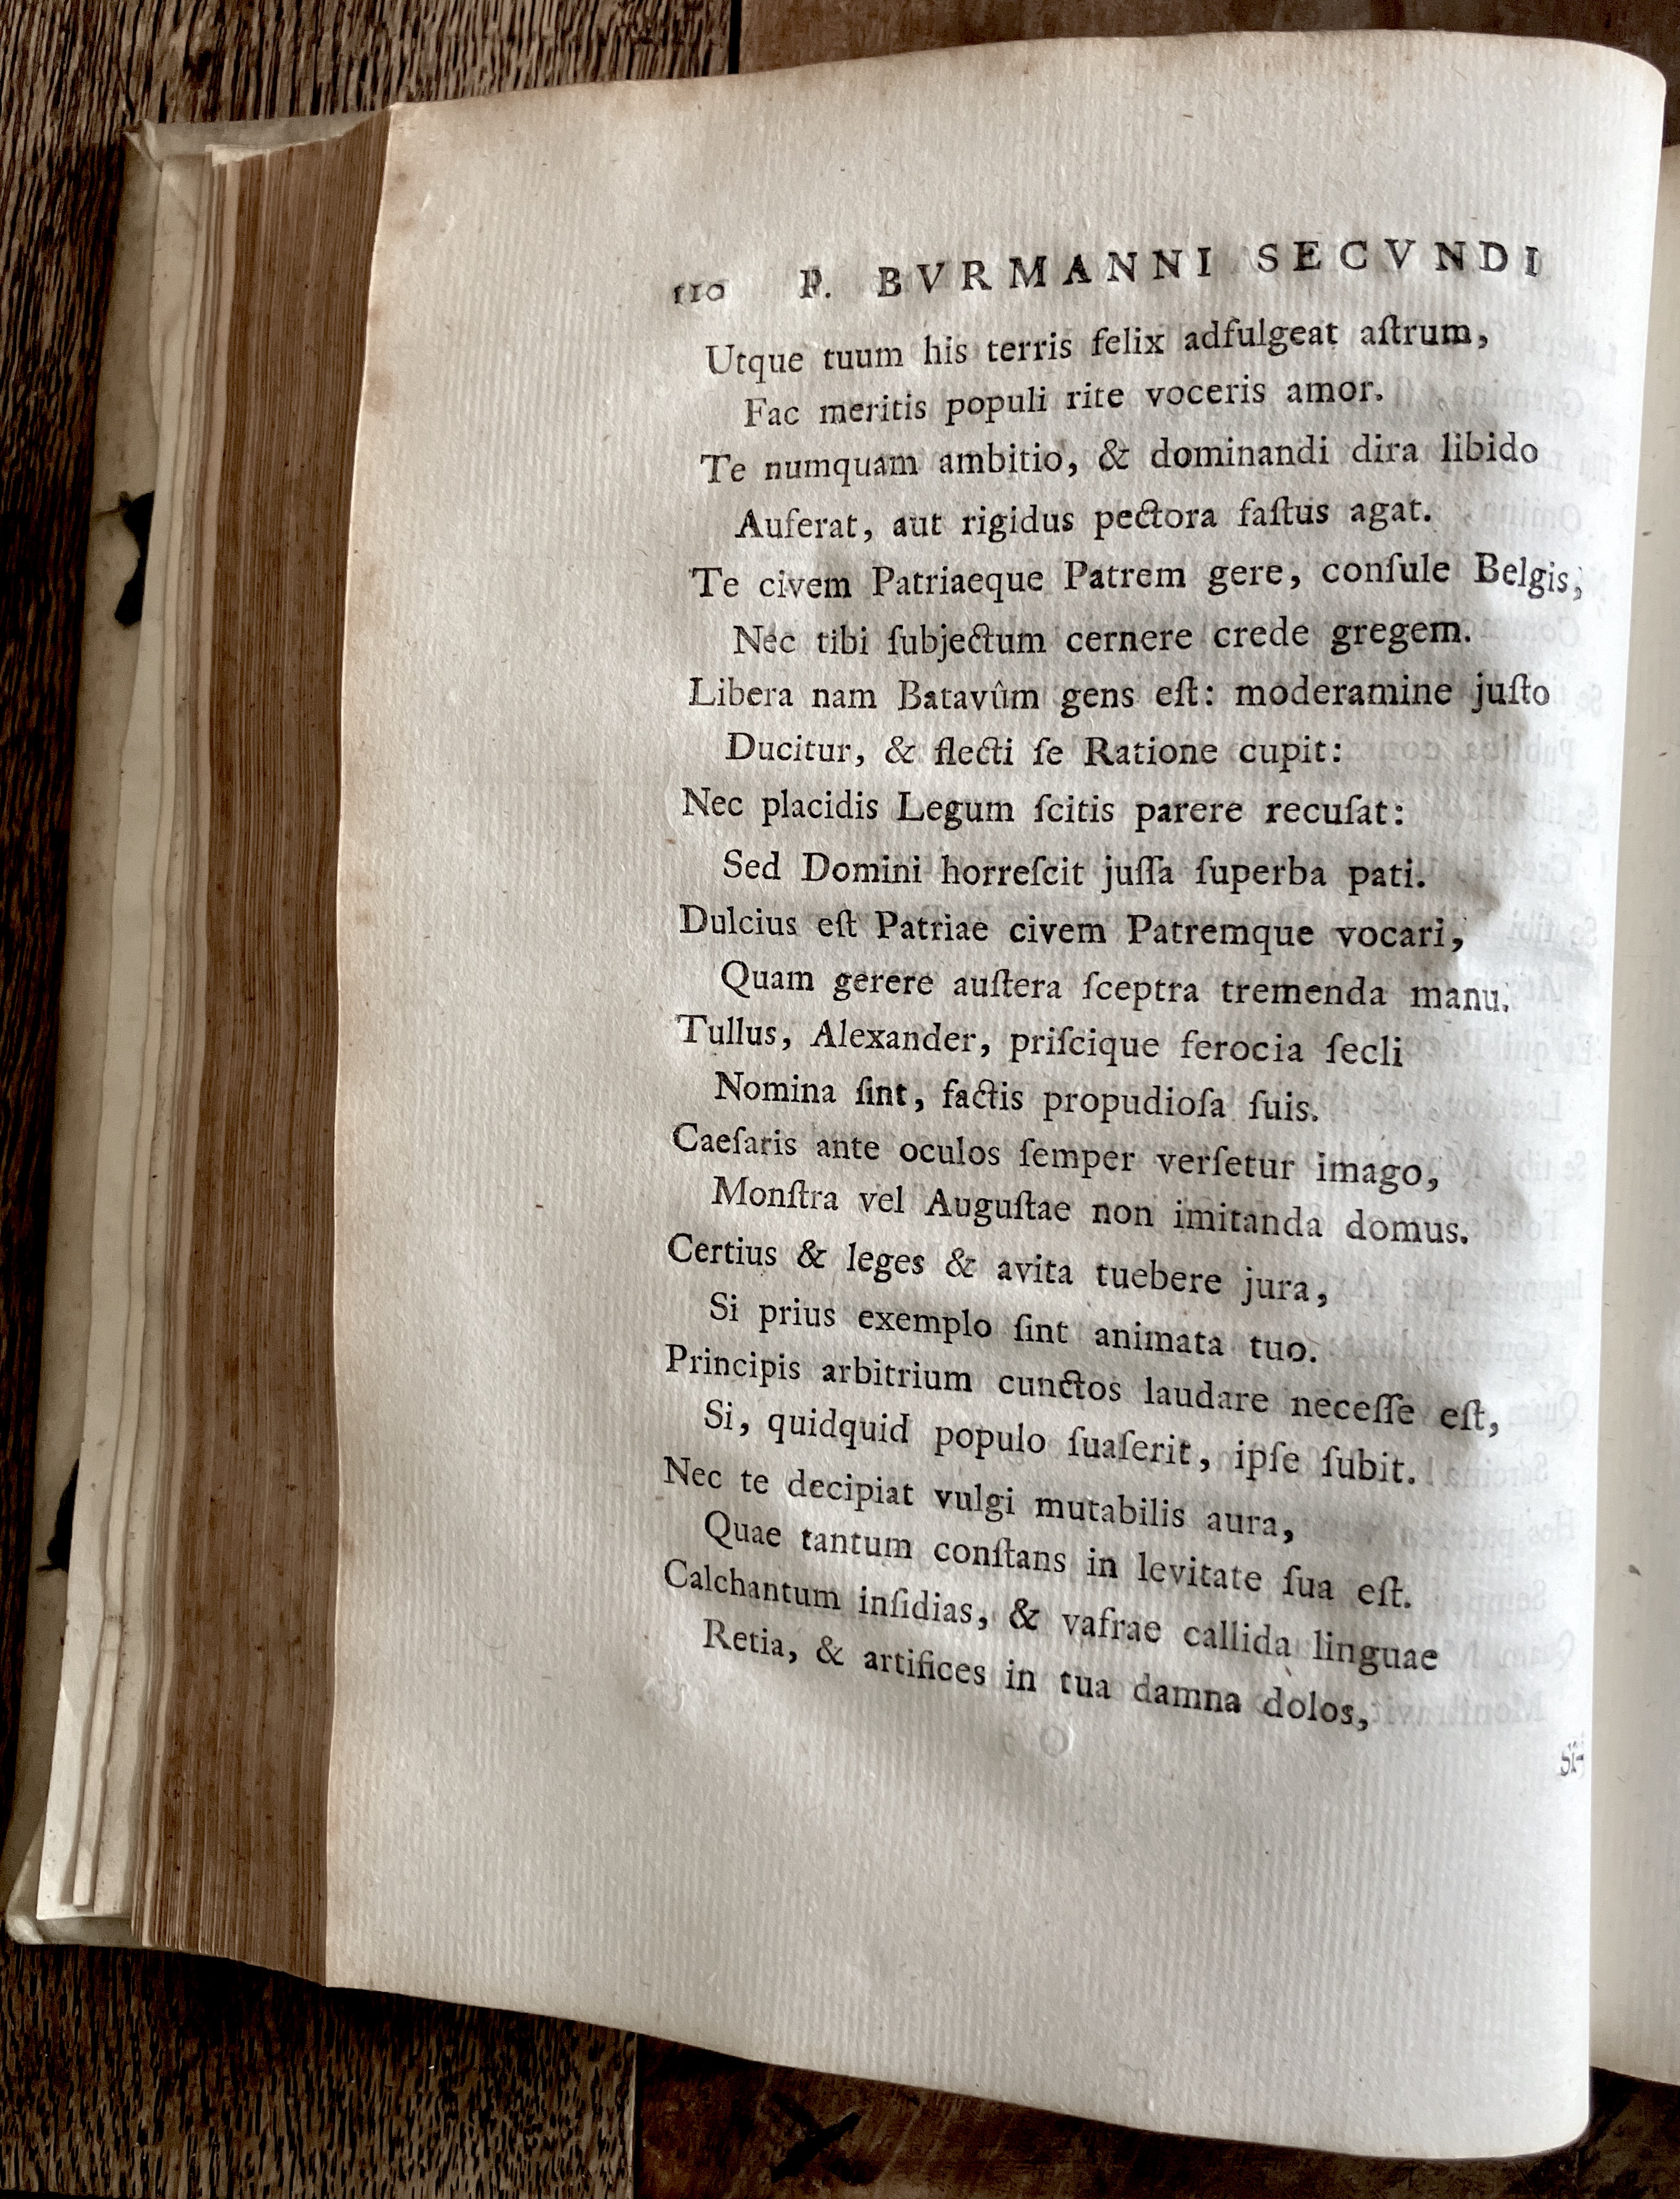 110 P. BVRMANNI SECVNDI
Utque tuum his terris felix adfulgeat aſtrum,
Fac meritis populi rite voceris amor.
Te numquam ambitio, & dominandi dira libido
Auferat, aut rigidus pectora faſtus agat.
Te civem Patriaeque Patrem gere, conſule Belgis,
Nec tibi ſubjectum cernere crede gregem.
Libera nam Batavûm gens eſt: moderamine juſto
Ducitur, & flecti ſe Ratione cupit:
Nec placidis Legum ſcitis parere recuſat:
Sed Domini horreſcit juſſa ſuperba pati.
Dulcius eſt Patriae civem Patremque vocari,
Quam gerere auſtera ſceptra tremenda manu.
Tullus, Alexander, priſcique ferocia ſecli
Nomina ſint, factis propudioſa ſuis.
Caeſaris ante oculos ſemper verſetur imago,
Monſtra vel Auguſtae non imitanda domus.
Certius & leges & avita tuebere jura,
Si prius exemplo ſint animata tuo.
Principis arbitrium cunctos laudare neceſſe eſt,
Si, quidquid populo ſuaſerit, ipſe ſubit.
Nec te decipiat vulgi mutabilis aura,
Quae tantum conſtans in levitate ſua eſt.
Calchantum inſidias, & vafrae callida linguae
Retia, & artifices in tua damna dolos,